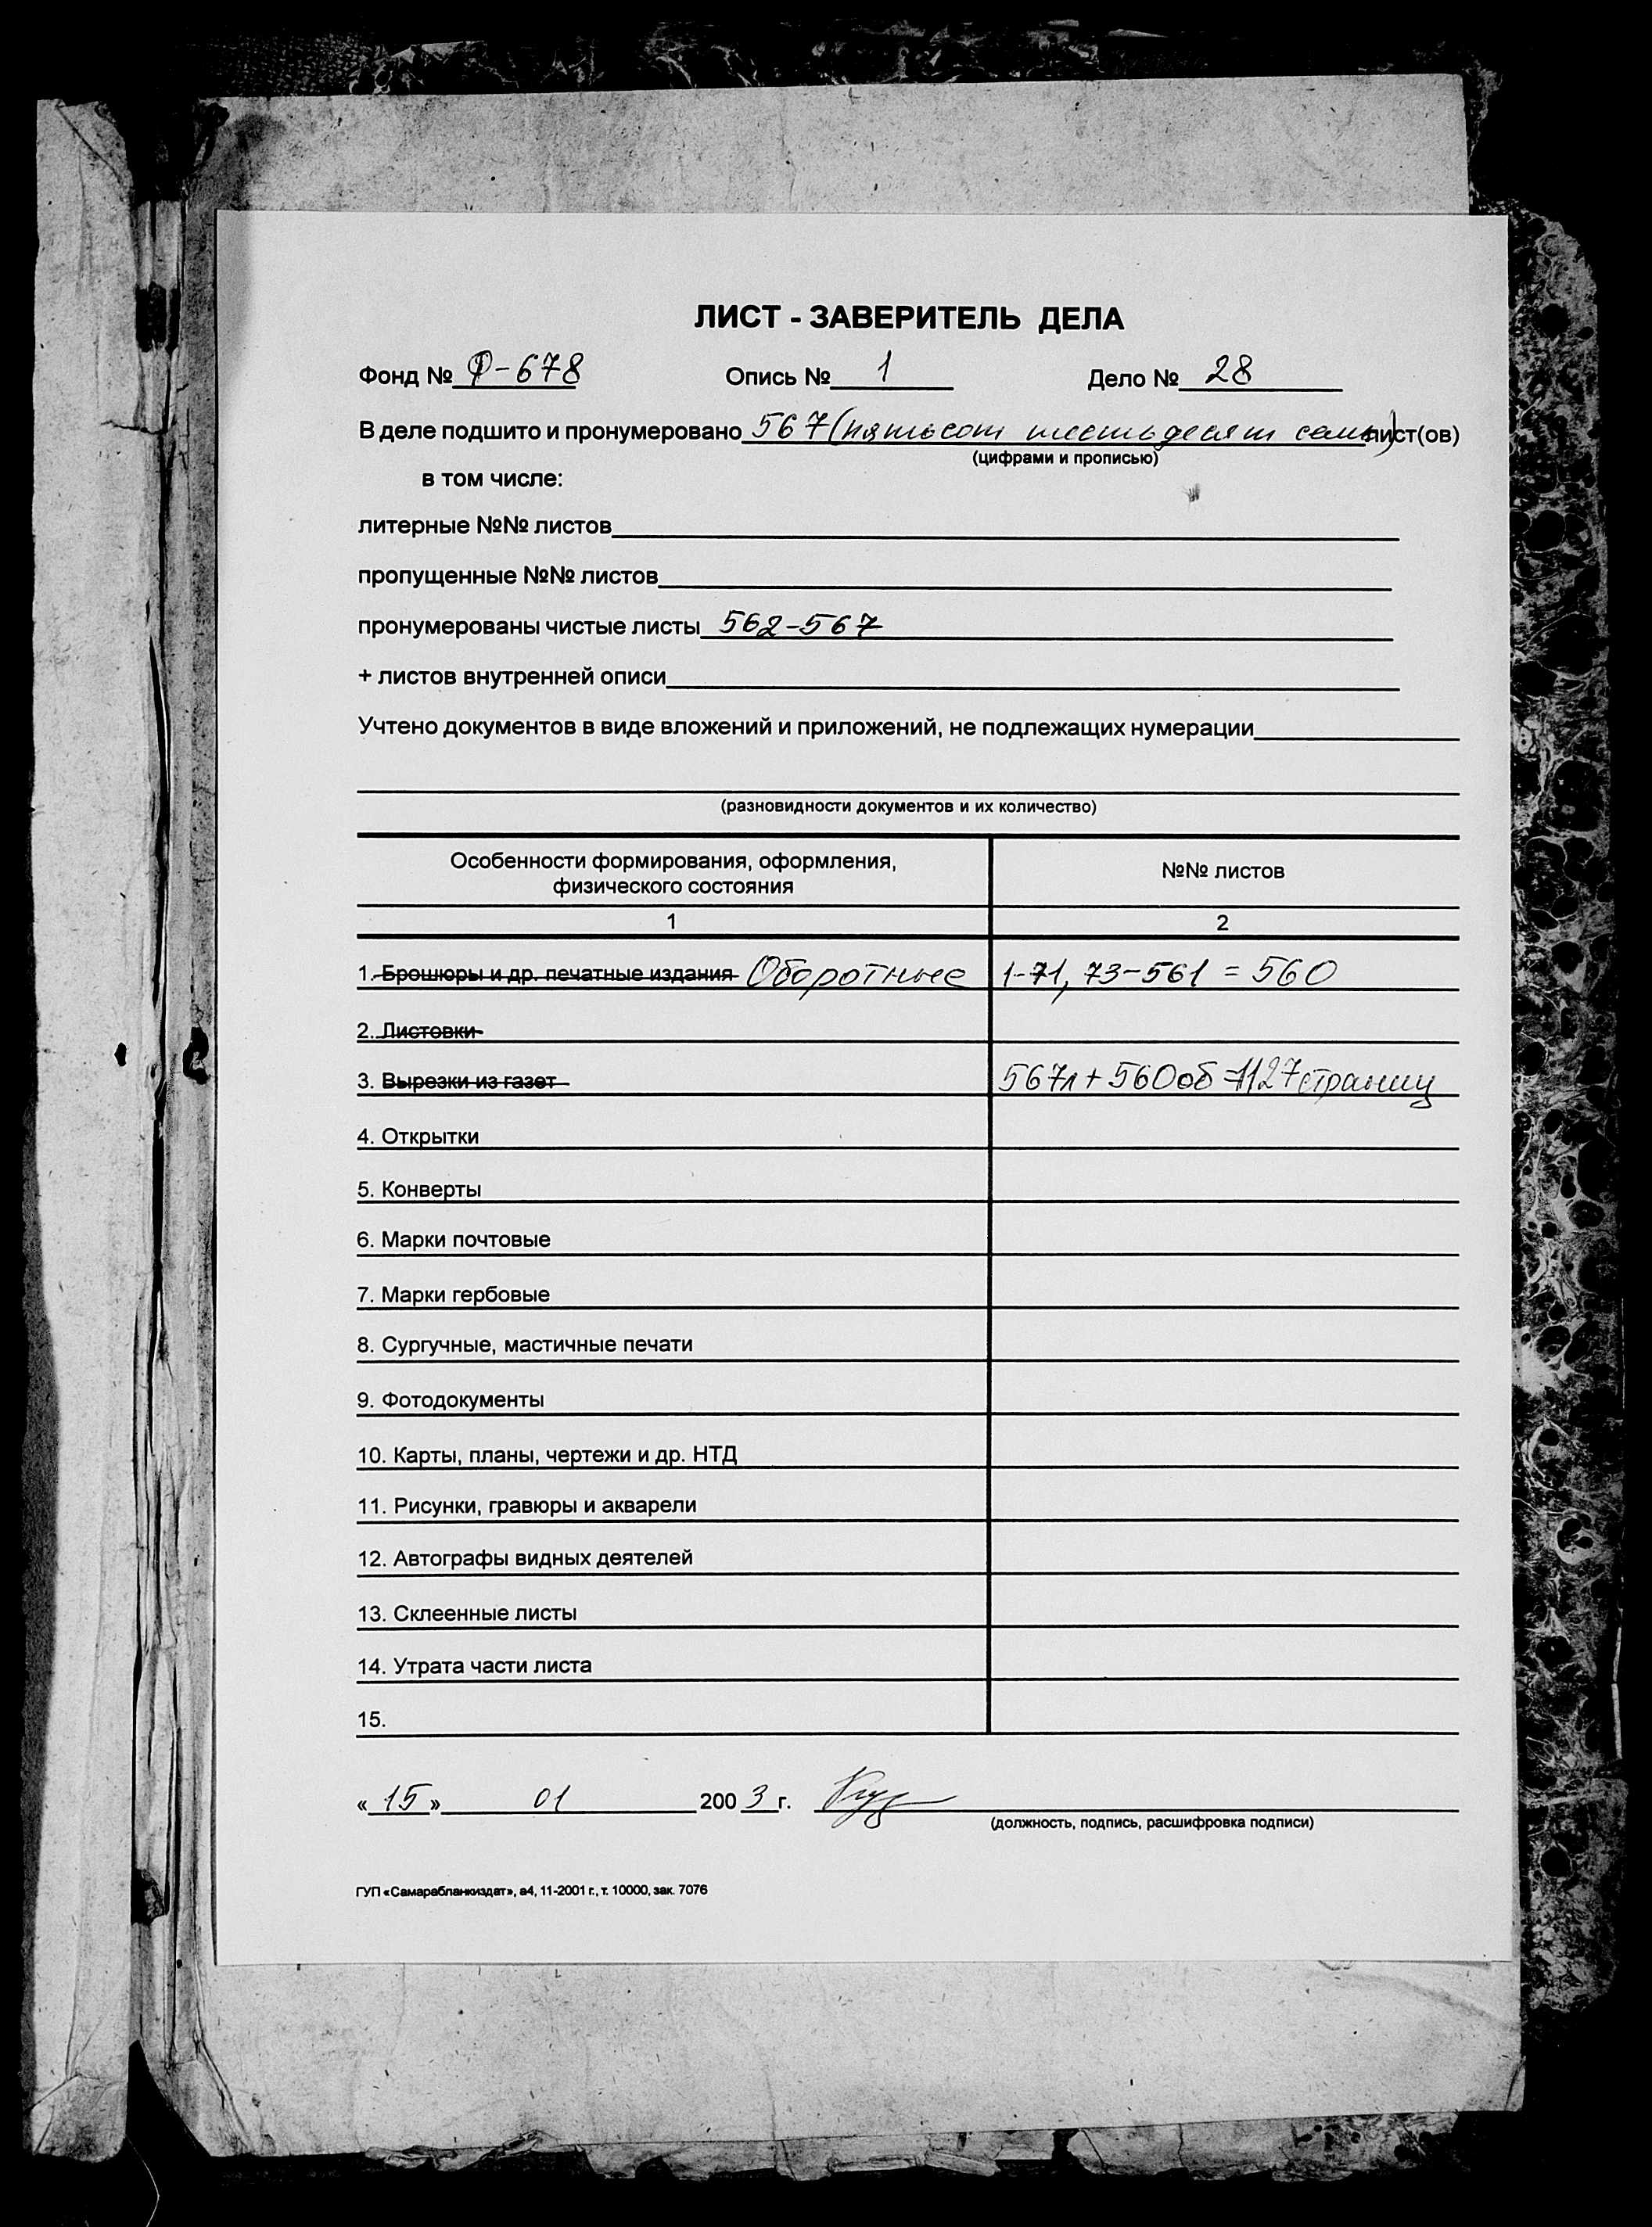 ЛИСТ - ЗАВЕРИТЕЛЬ ДЕЛА
Фонд № Ф-678 Опись № 1 Дело № 28
В деле подшито и пронумеровано 567 (пятьсот шестьдесят семь) лист(ов)
(цифрами и прописью)
в том числе:
литерные №№ листов
пропущенные №№ листов
пронумерованы чистые листы 562-567
+ листов внутренней описи
Учтено документов в виде вложений и приложений, не подлежащих нумерации
(разновидности документов и их количество)
Особенности формирования, оформления, №№ листов
физического состояния
1 2
1. Брошюры и др. печатные издания Оборотные 1-71, 73-561 = 560
2. Листовки
3. Вырезки из газет 567л + 560об = 1127 страниц
4. Открытки
5. Конверты
6. Марки почтовые
7. Марки гербовые
8. Сургучные, мастичные печати
9. Фотодокументы
10. Карты, планы, чертежи и др. НТД
11. Рисунки, гравюры и акварели
12. Автографы видных деятелей
13. Склеенные листы
14. Утрата части листа
15.
« 15 » 01 200 3 г.
(должность, подпись, расшифровка подписи)
ГУП «Самарабланкиздат», а4, 11-2001 г., т. 10000, зак. 7076